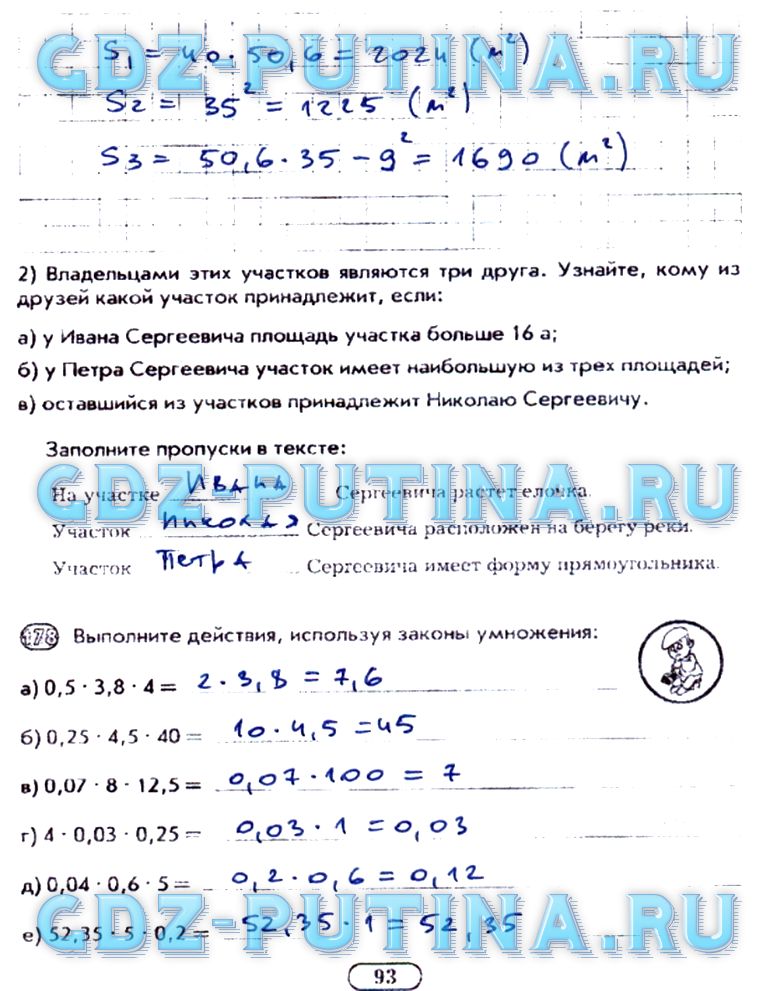 S₁ = 40 · 50,6 = 2024 (м²)
S₂ = 35² = 1225 (м²)
S₃ = 50,6 · 35 – 9² = 1690 (м²)
GDZ-PUTINA.RU
2) Владельцами этих участков являются три друга. Узнайте, кому из
друзей какой участок принадлежит, если:
а) у Ивана Сергеевича площадь участка больше 16 а;
б) у Петра Сергеевича участок имеет наибольшую из трех площадей;
в) оставшийся из участков принадлежит Николаю Сергеевичу.
Заполните пропуски в тексте:
GDZ-PUTINA.RU
На участке Ивана Сергеевича растет елочка.
Участок Николая Сергеевича расположен на берегу реки.
Участок Петра Сергеевича имеет форму прямоугольника.
178 Выполните действия, используя законы умножения:
а) 0,5 · 3,8 · 4 = 2 · 3,8 = 7,6
б) 0,25 · 4,5 · 40 = 10 · 4,5 = 45
в) 0,07 · 8 · 12,5 = 0,07 · 100 = 7
г) 4 · 0,03 · 0,25 = 0,03 · 1 = 0,03
д) 0,04 · 0,6 · 5 = 0,2 · 0,6 = 0,12
GDZ-PUTINA.RU
е) 52,35 · 5 · 0,2 = 52,35 · 1 = 52,35
93